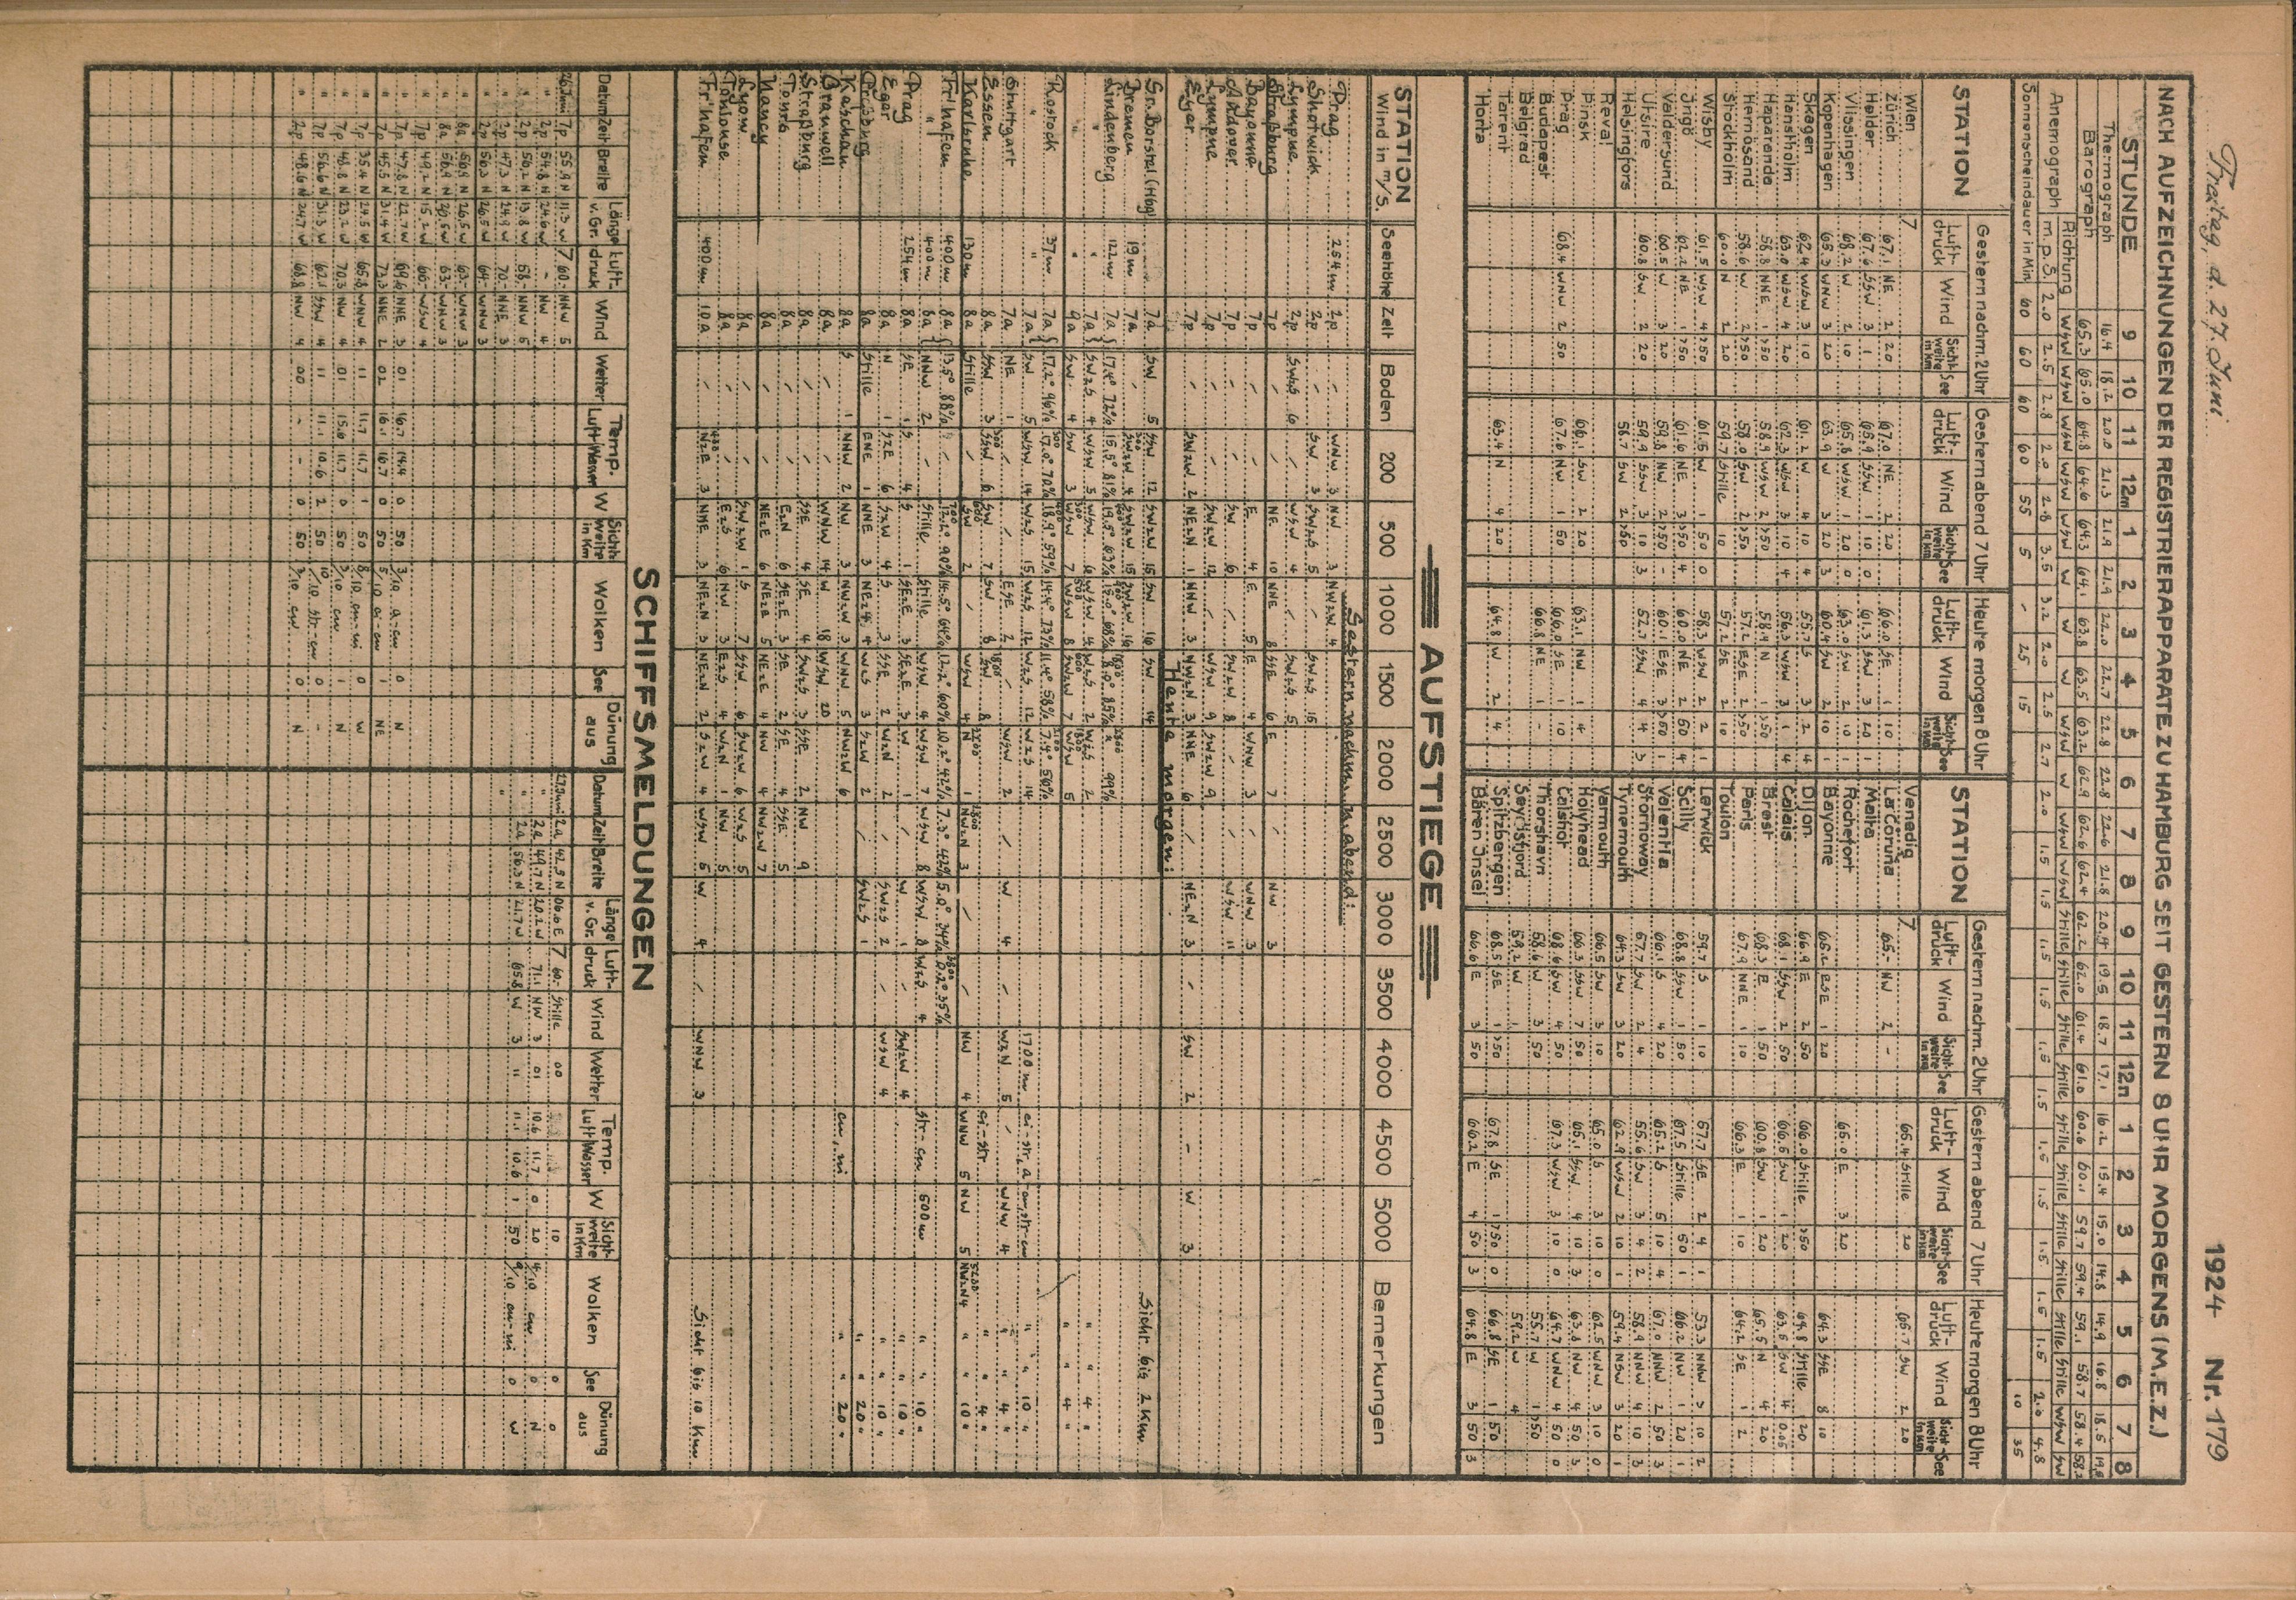 Freitag, d. 27. Juni 1924 Nr. 179
NACH AUFZEICHNUNGEN DER REGISTRIERAPPARATE ZU HAMBURG SEIT GESTERN 8 UHR MORGENS (M.E.Z.)
STUNDE 9 10 11 12m 1 2 3 4 5 6 7 8 9 10 11 12n 1 2 3 4 5 6 7 8
Thermograph 16.4 18.2 20.0 21.3 21.9 21.9 22.0 22.7 22.8 22.8 22.6 21.8 20.4 19.5 18.7 17.1 16.2 15.4 15.0 14.8 14.9 16.8 18.5
Barograph 65.3 65.0 64.8 64.6 64.3 64.1 63.8 63.5 63.2 62.9 62.6 62.4 62.2 62.0 61.4 61.0 60.6 60.1 59.7 59.4 59.1 58.7 58.4
Anemograph Richtung WSW WSW WSW WSW WSW W W W WSW W WSW WSW Stille Stille Stille Stille Stille Stille Stille Stille Stille Stille WSW SW
m.p.S. 2.0 2.5 2.8 2.0 2.8 3.5 3.2 2.0 2.5 2.7 2.0 1.5 1.5 1.5 1.5 1.5 1.5 1.5 1.5 1.5 1.5 1.5 2.0 4.8
Sonnenscheindauer in Min 60 60 60 60 55 5 - 25 15 10 35
STATION Gestern nachm. 2 Uhr Gestern abend 7 Uhr Heute morgen 8 Uhr STATION Gestern nachm. 2 Uhr Gestern abend 7 Uhr Heute morgen 8 Uhr
Luft-druck Wind Sicht-weite in Km See Luft-druck Wind Sicht-weite in Km See Luft-druck Wind Sicht-weite in Km See
Wien 7 Venedig 7 65.4 Stille 20 66.7 SW 2 20
Zürich 67.1 NE 2 20 67.0 NE 2 20 66.0 SE 1 10 La Coruna 65.- NW 2 -
Helder 67.6 SSW 3 1 65.9 SSW 1 10 0 61.3 SSW 3 20 1 Malta
Vlissingen 68.2 W 1 10 65.8 WSW 1 20 0 63.0 SW 2 10 1 Rochefort 65.0 E 3 20
Kopenhagen 65.3 WNW 3 20 63.9 W 3 20 3 60.4 SW 2 10 Bayonne 65.2 ESE 1 20 64.3 SSE 8 10
Skagen 62.4 WSW 3 10 61.2 W 4 10 4 55.7 S 3 2 4 Dijon 66.9 E 2 50 66.0 Stille >50 64.8 Stille 20
Hanstholm 63.0 WSW 4 20 62.3 WSW 3 10 4 56.3 WSW 3 1 4 Calais 68.1 SSW 2 50 66.5 SW 1 20 63.5 SW 4 0.05
Haparanda 58.8 NNE 1 >50 58.9 WSW 2 >50 58.9 N 1 >50 Brest 68.3 E 1 50 60.8 SW 1 20 65.5 N 4 20
Hernosand 58.6 W 2 >50 58.0 SW 2 >50 57.2 ESE 2 >50 Paris 67.9 NNE 1 10 66.3 E 1 10 64.2 SE 1 2
Stockholm 60.0 N 2 20 59.7 Stille 10 57.2 SE 2 10 Toulon
Wisby 61.5 WSW 4 >50 61.5 W 1 50 0 58.3 WSW 2 2 1 Lerwick 59.7 S 1 10 57.7 SE 2 4 1 53.3 NNW 3 10 2
Ingö 62.2 NE 1 >50 61.6 NE 3 >50 4 60.0 NE 2 50 4 Scilly 68.8 SSW 1 50 67.5 Stille 50 1 66.2 NW 1 20 1
Valdersund 60.5 W 3 20 59.8 NW 2 >50 - 60.1 ESE 3 >50 1 Valentia 66.1 S 4 20 65.2 S 5 10 4 67.0 NNW 2 50 3
Utsire 60.8 SW 2 20 59.9 SSW 3 10 3 52.7 SSW 4 4 3 Stornoway 57.7 SW 2 4 55.6 SW 3 4 2 58.9 NNW 4 10 3
Helsingfors 58.7 SW 2 >50 Tynemouth 64.3 SW 3 20 62.9 WSW 2 10 1 59.4 NSW 3 20 1
Reval Yarmouth 66.5 SW 3 10 65.0 S 3 10 0 62.5 WNW 3 10
Pinsk 66.1 SW 2 20 63.1 NW 1 4 Holyhead 66.3 SSW 7 50 65.1 SSW 4 10 3 63.8 NW 4 50 3
Prag 68.4 WNW 2 50 67.6 NW 1 50 66.0 SE 1 10 Calshot 68.6 SSW 4 50 67.3 WSW 3 10 0 64.7 WNW 4 50 0
Budapest 66.8 NE 1 - Thorshavn 58.6 W 3 50 55.7 W 1 >50
Belgrad Seydisfjord 59.2 W 1 59.2 W 4
Tarent 63.4 N 4 20 64.8 W 2 4 Spitzbergen 68.5 SE 1 >50 67.8 SE 1 >50 0 66.8 SE 1 >50
Horta Bären Insel 66.6 E 3 50 66.2 E 4 50 3 64.8 E 3 50 3
AUFSTIEGE
STATION Wind in m/s. Seehöhe Zeit Boden 200 500 1000 1500 2000 2500 3000 3500 4000 4500 5000 Bemerkungen
Gestern nachm. u. abend:
Prag 254m 2p / WNW 3 NW 3 NW2W 4
Shotwick 2p / SW 3 SW2S 5 SSW2S 15
Lympne 2p SW2S 6 / WSW 4 / SW2S 5
Straßburg 7p / / NE 10 NNE 8 SSE 6 E 7 / NW 3
Bayonne 7p / / E 4 E 5 E 4 WNW 3 / WNW 3
Andover 7p / / SW 6 / SW2W 8 / WSW 11
Lympne 7p / / 12 / SSW 9 SW2W 9
Eger 7p / SW2W 2 NE2N 1 NNW 3 NW2N 3 NNE 6 / NE2N 3 / SW 2 - W 3
Heute morgen:
Gr. Borstel (Hbg) 7a SW 5 SSW 12 SW2W 15 SW 16 SW 14 Sicht bis 2 Km
Bremen 19m 7a
Lindenberg 122m 7a 17.4° 72% 15.5° 81%
" " 7a SW2S 4 WSW 5 WSW 6 WSW 4 W2S 2 W2S 2 " " 4 "
" 9a SW 4 SW 3 WSW 7 WSW 8 SW2W 7 WSW 5 " 59.2 " 4 "
Rostock 37m 7a 17.2° 96% 17.0° 70% 18.9° 59% 14.4° 73% 11.4° 58% 7.4° 50%
" " 7a SW 5 WSW 14 W2S 15 W2S 12 W2S 12 W2S 14 1700m ci-str, a-cu, str-cu " " 10 "
Stuttgart 7a NE 1 / / ESE 2 / N 2 / W 4 / W2N 5 / WNW 4 " " 4 "
Essen 8a SSW 3 SSW 6 SW 7 SW 8 SW 8 ci-str. " " 4 "
Karlsruhe 130m 8a Stille / SW 2 / WSW 4 N 1 NW2N 3 / / NW 4 WNW 5 NW 5 NW2N4 " " 10 "
Fr'hafen 400m 8a 13.5° 88%
" 400m 8a NNW 2 / Stille Stille WSW 4 WSW 7 WSW 8 WSW 8 W2S 4 str-cu 600m " " 10 "
Prag 254m 8a SE 1 S 4 S 1 SE2E 3 SE2E 3 W 1 / W 1 / SW2W 4 " " 10 "
Eger 8a N 1 S2E 6 S2W 4 S 3 SSE 2 W2N 2 / SW2S 2 / WSW 4 " " 10 "
Preßburg 8a Stille ENE 1 NNE 3 NE2E 4 W2S 3 S2W 2 / SW2S 1 " " 20 "
Kaschau 8a S 1 NNW 2 NW 3 NW2W 3 WNW 5 NW2W 6 cu, ni " " 20 "
Cranwell 8a / / WNW 14 W 18 WSW 20
Straßburg 8a / / SSE 4 SE 4 SW2S 3 SSE 2 NW 9
Tours 8a / / E2N 6 SE2E 3 SE 2 SE 4 SSE 5
Nancy 8a / / NE2E 6 NE2E 5 NE2E 4 NW 4 NW2W 7
Lyon 8a / / SW2W 1 S 7 SSW 6 SW2W 6 W2S 5
Toulouse 8a / / E2S 6 NW 3 E2S 4 W2N 1 NW 5
Fr'hafen 400m 10a / N2E 3 NNE 3 NE2N 3 NE2N 2 S2W 4 WSW 5 W 4 / WNW 3 Sicht bis 10 Km
SCHIFFSMELDUNGEN
Datum Zeit Breite Länge v. Gr. Luft-druck Wind Wetter Temp. Luft Wasser W Sicht-weite in Km Wolken See Dünung aus Datum Zeit Breite Länge v. Gr. Luft-druck Wind Wetter Temp. Luft Wasser W Sicht-weite in Km Wolken See Dünung aus
26. Juni 7p 55.9 N 11.3 W 7 60.- NNW 5 27. Juni 2a 42.3 N 06.6 E 7 60.- Stille 00 10 0 0
" 2p 51.8 N 24.6 W - NW 4 " 2a 49.7 N 20.2 W 71.1 NW 3 01 10.6 11.7 0 20 4/10 cu 0 N
" 2p 50.2 N 13.8 W 58.- NNW 5 " 2a 56.3 N 21.7 W 65.8 W 3 11 11.1 10.6 1 50 /10 cu-ni 0 W
" 2p 47.3 N 24.9 W 70.- NNE 3
" 2p 56.3 N 26.5 W 64.- WNW 3
" 8a 56.9 N 26.5 W 63.- NNW 3
" 8a 56.9 N 26.5 W 63.- NNW 3
" 7p 49.2 N 15.2 W 60.- WSW 4
" 7p 47.8 N 22.7 W 69.6 NNE 3 01 16.7 14.4 0 50 3/10 a-cu 0 N
" 7p 45.5 N 31.4 W 73.3 NNE 2 02 16.1 16.7 0 50 5/10 ci-cu 1 NE
" 7p 35.4 N 24.5 W 65.8 WNW 4 11 11.7 11.7 1 50 8/10 cu-ni 0 W
" 7p 48.8 N 23.2 W 70.3 NW 4 01 15.6 11.7 0 50 3/10 cu 1 N
" 7p 56.6 N 31.3 W 62.1 SSW 4 11 11.1 10.6 2 50 10/10 str-cu 0 -
" 2p 48.6 N 24.7 W 68.8 NNW 4 00 - - 0 50 3/10 cu 0 N